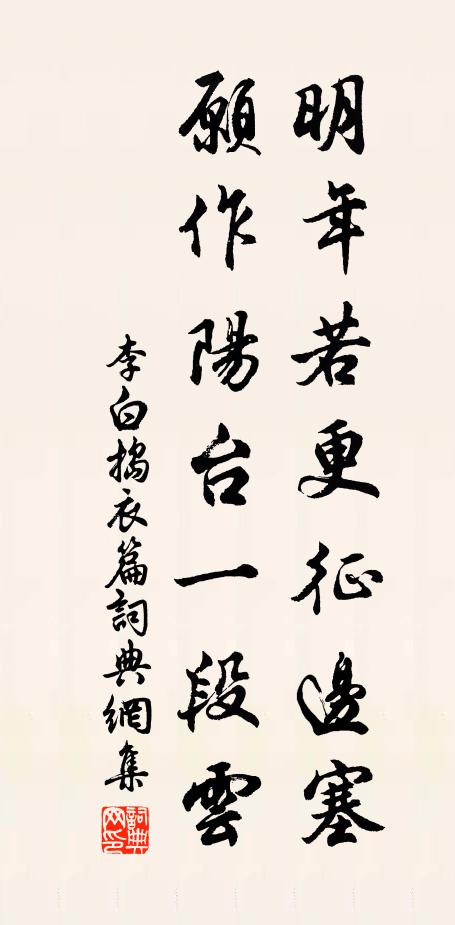 明年若更征邊塞
願作陽台一段雲
李白搗衣篇詞典網集
詞典網印